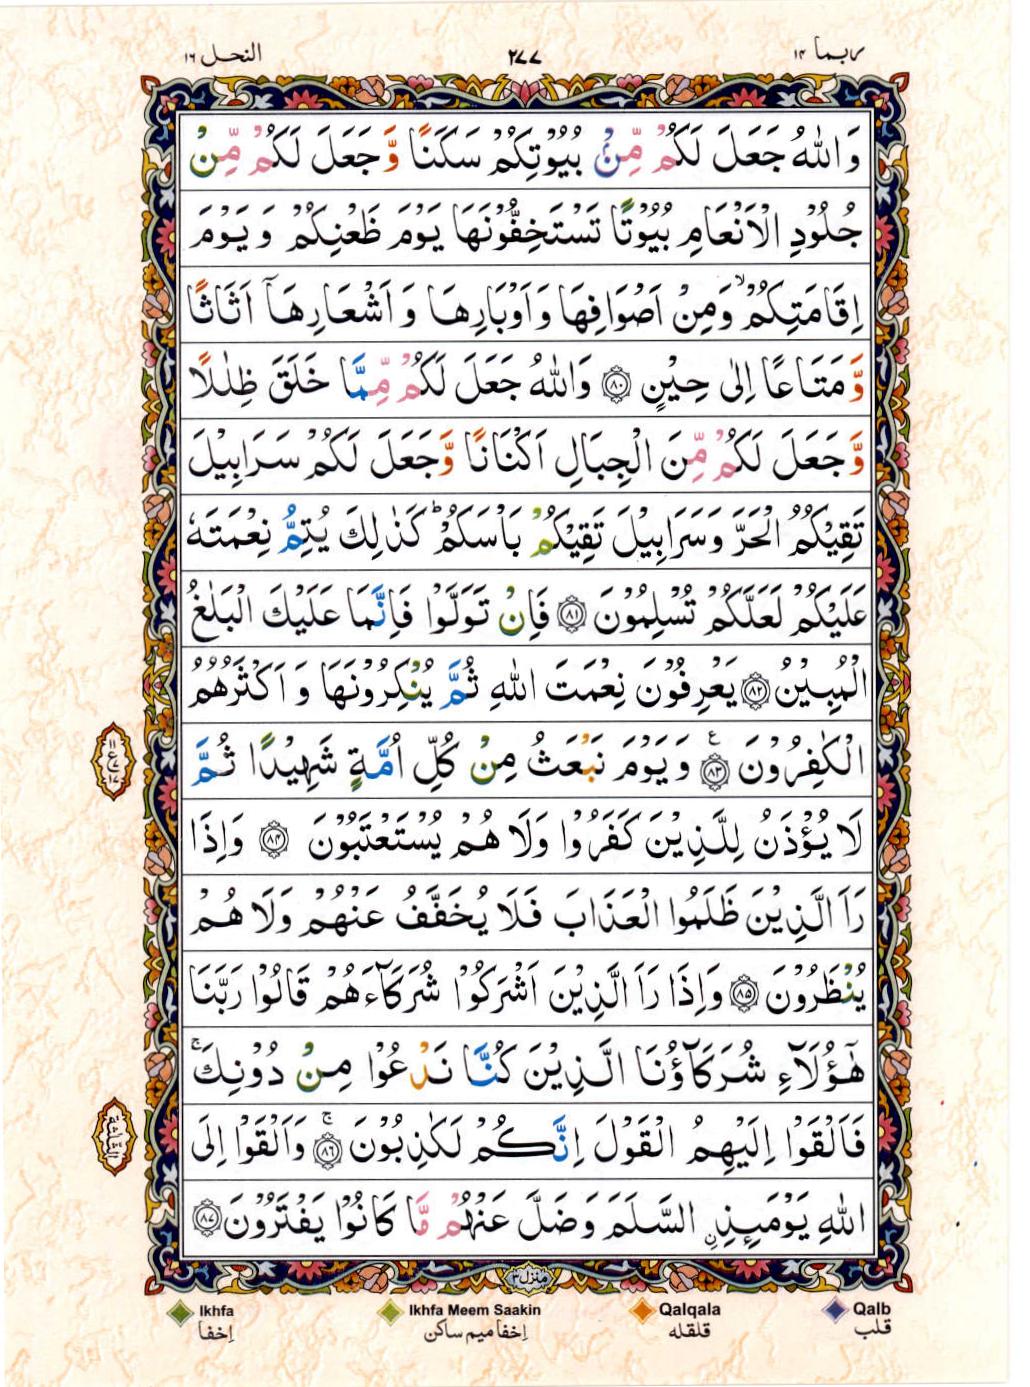 النحل ١٦
٢٧٧
ربما ١٤
وَاللّٰهُ جَعَلَ لَكُمْ مِّنْۢ بُيُوْتِكُمْ سَكَنًا وَّجَعَلَ لَكُمْ مِّنْ
جُلُوْدِ الْاَنْعَامِ بُيُوْتًا تَسْتَخِفُّوْنَهَا يَوْمَ ظَعْنِكُمْ وَيَوْمَ
اِقَامَتِكُمْ ۙ وَمِنْ اَصْوَافِهَا وَاَوْبَارِهَا وَاَشْعَارِهَآ اَثَاثًا
وَّمَتَاعًا اِلٰى حِيْنٍ ﴿٨٠﴾ وَاللّٰهُ جَعَلَ لَكُمْ مِّمَّا خَلَقَ ظِلٰلًا
وَّجَعَلَ لَكُمْ مِّنَ الْجِبَالِ اَكْنَانًا وَّجَعَلَ لَكُمْ سَرَابِيْلَ
تَقِيْكُمُ الْحَرَّ وَسَرَابِيْلَ تَقِيْكُمْ بَاْسَكُمْ ؕ كَذٰلِكَ يُتِمُّ نِعْمَتَهٗ
عَلَيْكُمْ لَعَلَّكُمْ تُسْلِمُوْنَ ﴿٨١﴾ فَاِنْ تَوَلَّوْا فَاِنَّمَا عَلَيْكَ الْبَلٰغُ
الْمُبِيْنُ ﴿٨٢﴾ يَعْرِفُوْنَ نِعْمَتَ اللّٰهِ ثُمَّ يُنْكِرُوْنَهَا وَاَكْثَرُهُمُ
الْكٰفِرُوْنَ ﴿٨٣﴾ ع وَيَوْمَ نَبْعَثُ مِنْ كُلِّ اُمَّةٍ شَهِيْدًا ثُمَّ
لَا يُؤْذَنُ لِلَّذِيْنَ كَفَرُوْا وَلَا هُمْ يُسْتَعْتَبُوْنَ ﴿٨٤﴾ وَاِذَا
رَاَ الَّذِيْنَ ظَلَمُوا الْعَذَابَ فَلَا يُخَفَّفُ عَنْهُمْ وَلَا هُمْ
يُنْظَرُوْنَ ﴿٨٥﴾ وَاِذَا رَاَ الَّذِيْنَ اَشْرَكُوْا شُرَكَآءَهُمْ قَالُوْا رَبَّنَا
هٰٓؤُلَآءِ شُرَكَآؤُنَا الَّذِيْنَ كُنَّا نَدْعُوْا مِنْ دُوْنِكَ ۚ
فَاَلْقَوْا اِلَيْهِمُ الْقَوْلَ اِنَّكُمْ لَكٰذِبُوْنَ ﴿٨٦﴾ ۚ وَاَلْقَوْا اِلَى
اللّٰهِ يَوْمَىِٕذِ ِۨالسَّلَمَ وَضَلَّ عَنْهُمْ مَّا كَانُوْا يَفْتَرُوْنَ ﴿٨٧﴾
الثلثة
منزل ٣
Ikhfa
إخفا
Ikhfa Meem Saakin
إخفا ميم ساكن
Qalqala
قلقله
Qalb
قلب